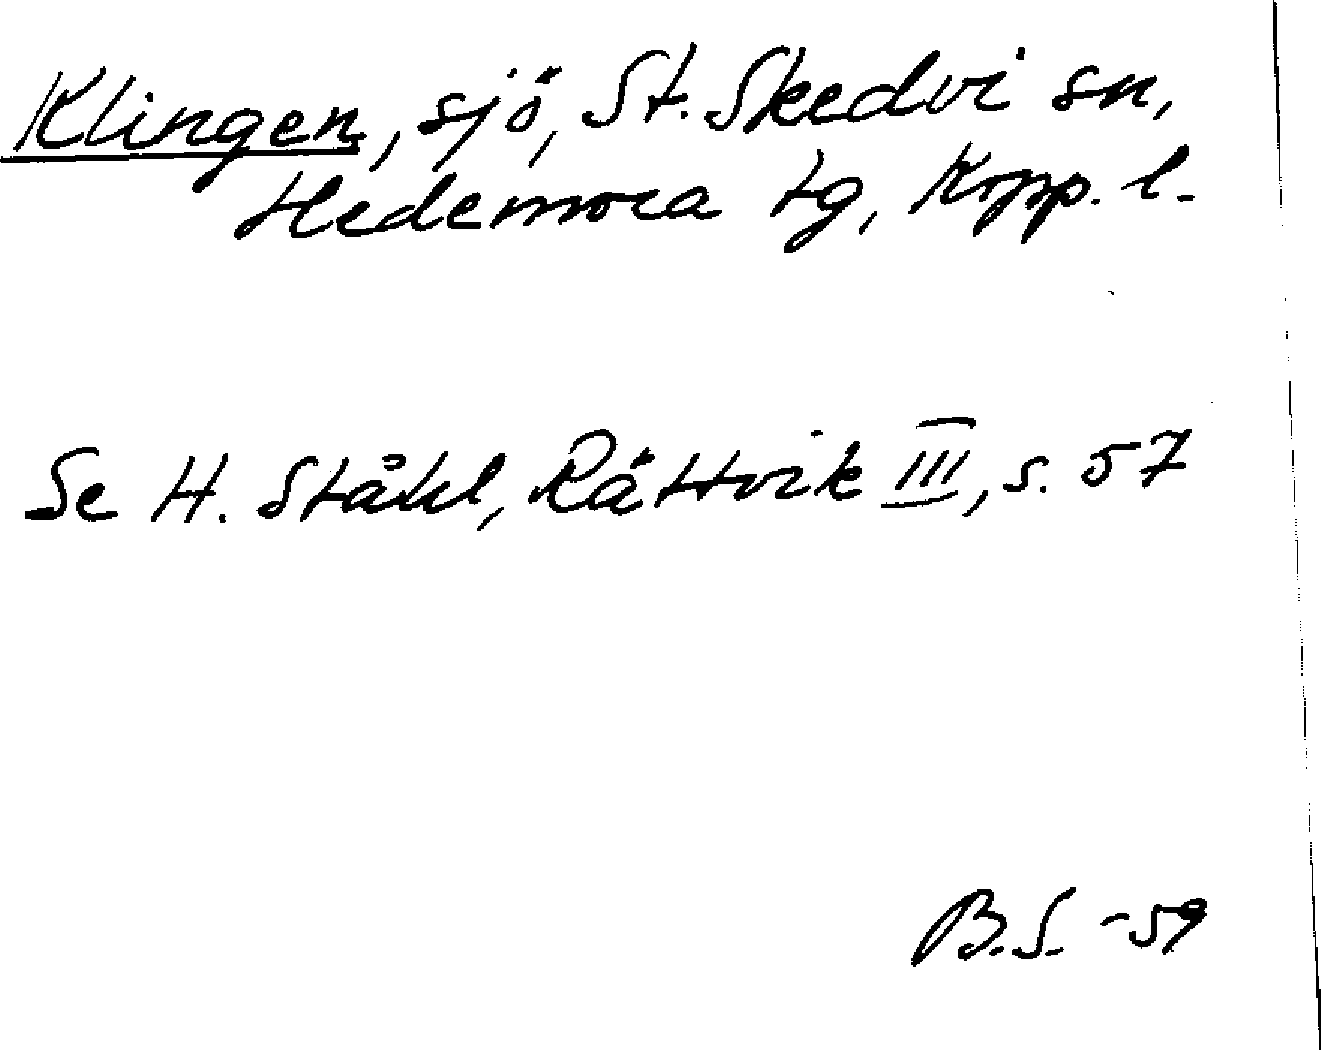 Klingen, sjö, St. Skedvi sn,
Hedemora tg, Kopp. l.
Se H. Ståhl, Rättvik III, s. 57
B.S. -59